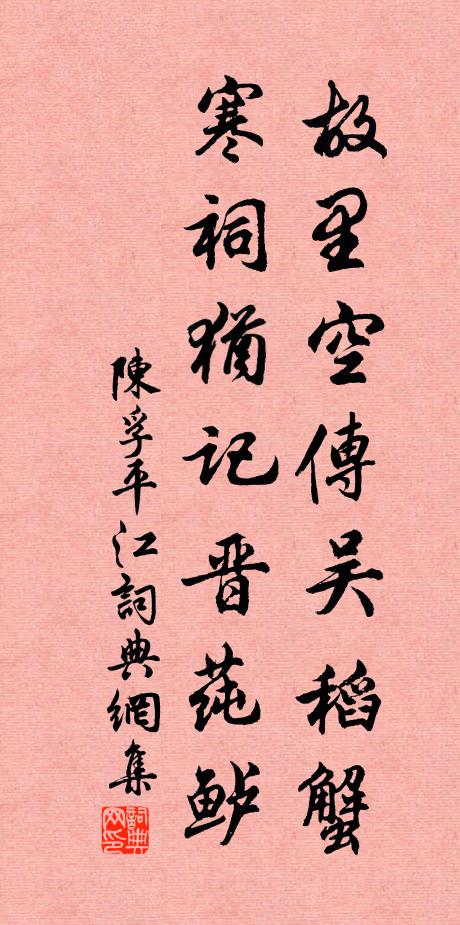 故里空傳吳稻蟹
寒祠猶記晋蒓鲈
陳孚平江詞典網集
詞典网印